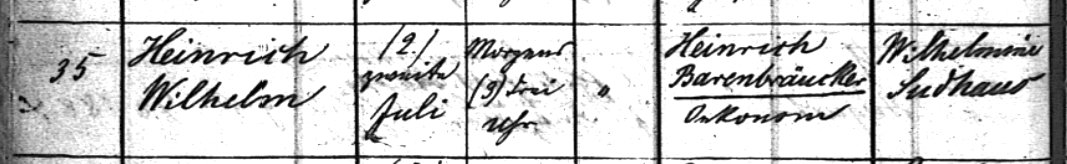 35
Heinrich
Wilhelm
(2.)
zweite
Juli
Morgens
(3) drei
Uhr
"
Heinrich
Barenbräucker
Oekonom
Wilhelmine
Sudhaus